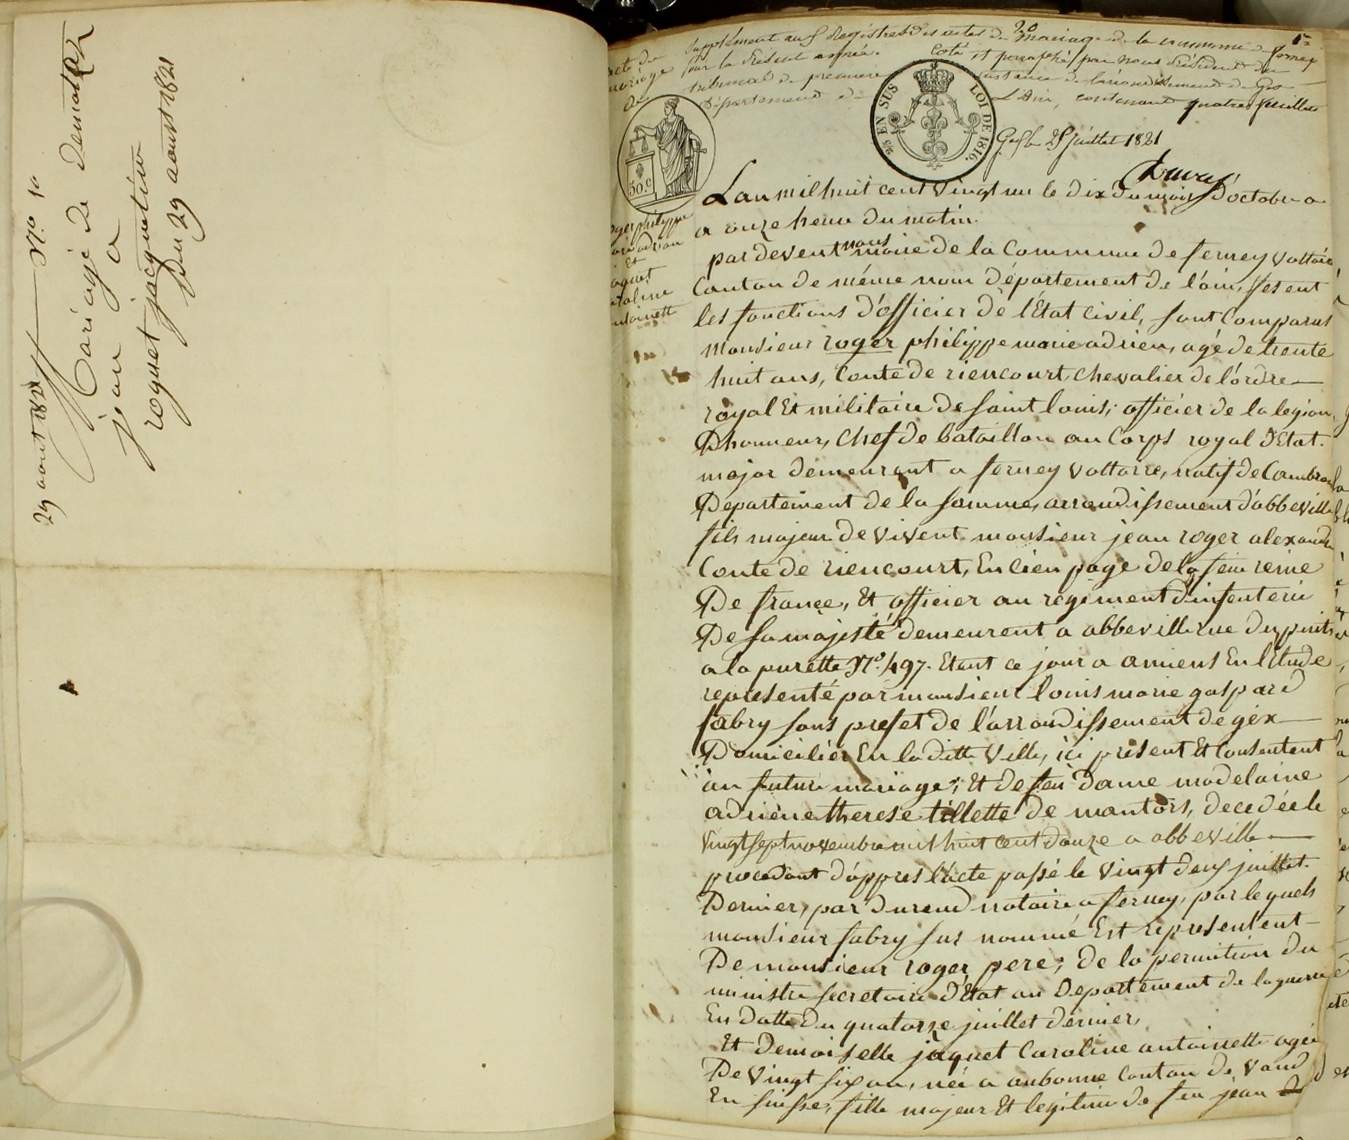 29 aoust 1821 N.o 10
Mariage de Dematra
jean a
roguet jacquetine
du 29 aoust 1821
acte de
mariage
de
roger philippe
marie adrien
Et
jaquet
Caroline
antoinette
20
1er
Supplément aux Registres des actes de mariage de la commune de ferney
pour la présente année. Coté et paraphé par nous Président du
tribunal de première instance de l'arrondissement de Gex
Département de L'ain, contenant quatre feuillets
Gex le 25 juillet 1821
30.c
25 EN SUS LOI DE 1816.
L'an mil huit cent vingt un le dix du mois d'octobre a
a onze heure du matin.
par devent nous maire de la Commune de ferney voltaire
Canton de même nom département de l'ain, fesent
les fonctions d'officier de l'Etat Civil, sont Comparus
Monsieur roger philippe marie adrien, agé de trente
huit ans, Conte de riencourt, chevalier de l'ordre
royal Et militaire de saint louis, officier de la legion
D'honneur, Chef de bataillon au Corps royal d'Etat-
major demeurant a ferney voltaire, natif de Cambron
Departement de la somme, arrondissement d'abbeville
fils majeur de vivent monsieur jean roger alexandre
Conte de riencourt, En cien page de la feue reine
De france, Et officier au régiment d'infenterie
De sa majesté demeurent a abbeville rue du puits
a la purette N.o 497. Etant ce jour a amiens En l'Etude
representé par monsieur louis marie gaspard
fabry sous prefet de l'arrondissement de gex
Domicilier En la ditte ville, ici présent Et Consentent
au futur mariage; Et de feu Dame madelaine
adriene therese tillette de mantors, decedée le
vingt sept novembre mil huit cent douze a abbeville
procedant d'appres l'acte passé le vingt deux juillet
Dernier, par Durend notaire a ferney, par lequels
monsieur fabry sus nommé Est representent
De monsieur roger pere; de la permition du
ministre secretaire d'Etat au Departement de la guerre
En datte du quatorze juillet dernier,
Et Demoiselle jaquet Caroline antoinette agée
De vingt six an, née a aubonne Canton de vaud
En suisse, fille majeur Et legitime de feu jean